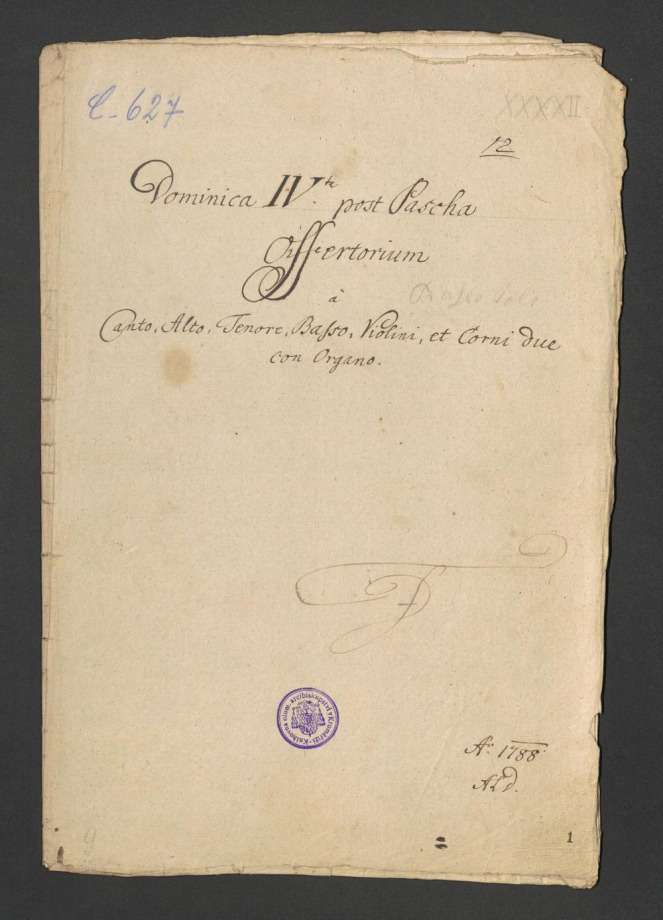 C-627
XXXXII
12
Dominica IV.te post Pascha
Offertorium
à
Canto, Alto, Tenore, Basso, Violini, et Corni due
con Organo.
Knihovna olom. arcibiskupství v Kroměříži
Ao. 1788.
9
1